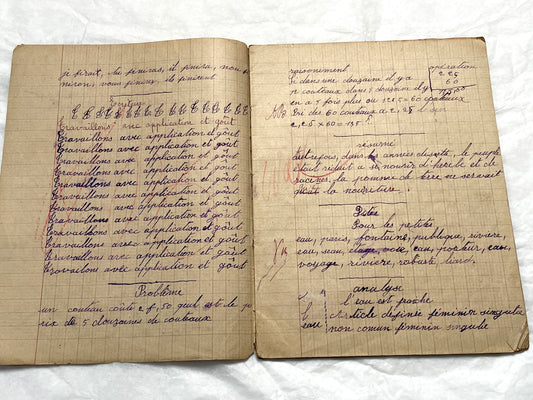 je finirai, tu finiras, il finira, nous
finirons, vous finirez, ils finiront
Ecriture
E E E E E E E E E E E E E E
Travaillons avec application et goût
Travaillons avec application et goût
Travaillons avec application et goût
Travaillons avec application et goût
Travaillons avec application et goût
Travaillons avec application et goût
Travaillons avec application et goût
Travaillons avec application et goût
Travaillons avec application et goût
Travaillons avec application et goût
Travaillons avec application et goût
Problème
un couteau coûte 2f,50 quel est le p
rix de 5 douzaines de couteaux
raisonnement
si dans une douzaine il y a
12 couteaux dans 5 douzaines il y
en a 5 fois plus ou 12 x 5 = 60 couteaux
60 couteaux a 2,25
2,25 x 60 = 135
opération
2,25
60
résumé
autrefois, dans les années disette, le peuple
était réduit a se nourrir d'herbe et de
racines, la pomme de terre ne servait
pas la nourriture
Dictée
Pour les petites
eau, puits, fontaine, publique, rivière
eau, seau, voie, eau, pocher, eau,
voyage, rivière, robuste, lard.
analyse
l'eau est proche
l' article définie féminin singulie
eau non comun féminin singulie